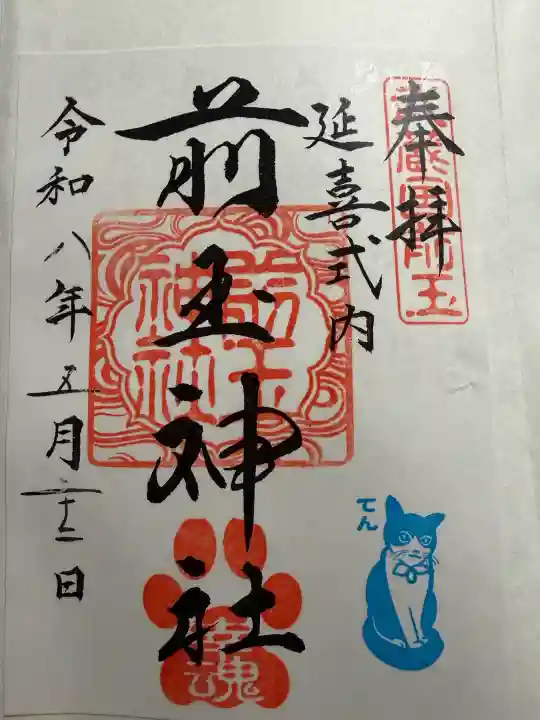 奉拝
武蔵国前玉
延喜式内
前玉神社
前玉神社
令和八年五月二十二日
てん
幸魂